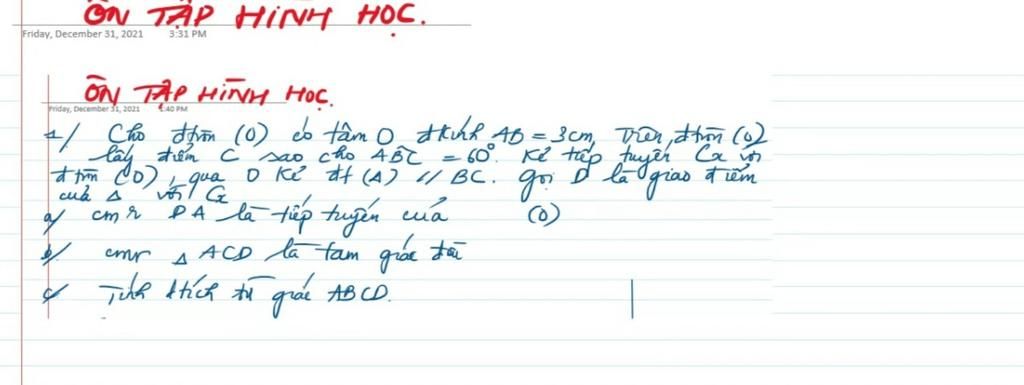 ÔN TẬP HÌNH HỌC.
Friday, December 31, 2021 3:31 PM
ÔN TẬP HÌNH HỌC.
Friday, December 31, 2021 1:40 PM
1/ Cho đtròn (O) có tâm O đkính AB = 3cm, Trên đtròn (O)
lấy điểm C sao cho ABC = 60°. Kẻ tiếp tuyến Cx với
đtròn (O), qua O kẻ đt (Δ) // BC. Gọi D là giao điểm
của Δ với Cx
a/ cmr DA là tiếp tuyến của (O)
b/ cmr Δ ACD là tam giác đều
c/ Tính dtích tứ giác ABCD.